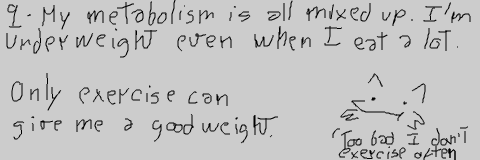 9. My metabolism is all mixed up. I'm
underweight even when I eat a lot.
Only exercise can
give me a good weight.
Too bad I don't
exercise often